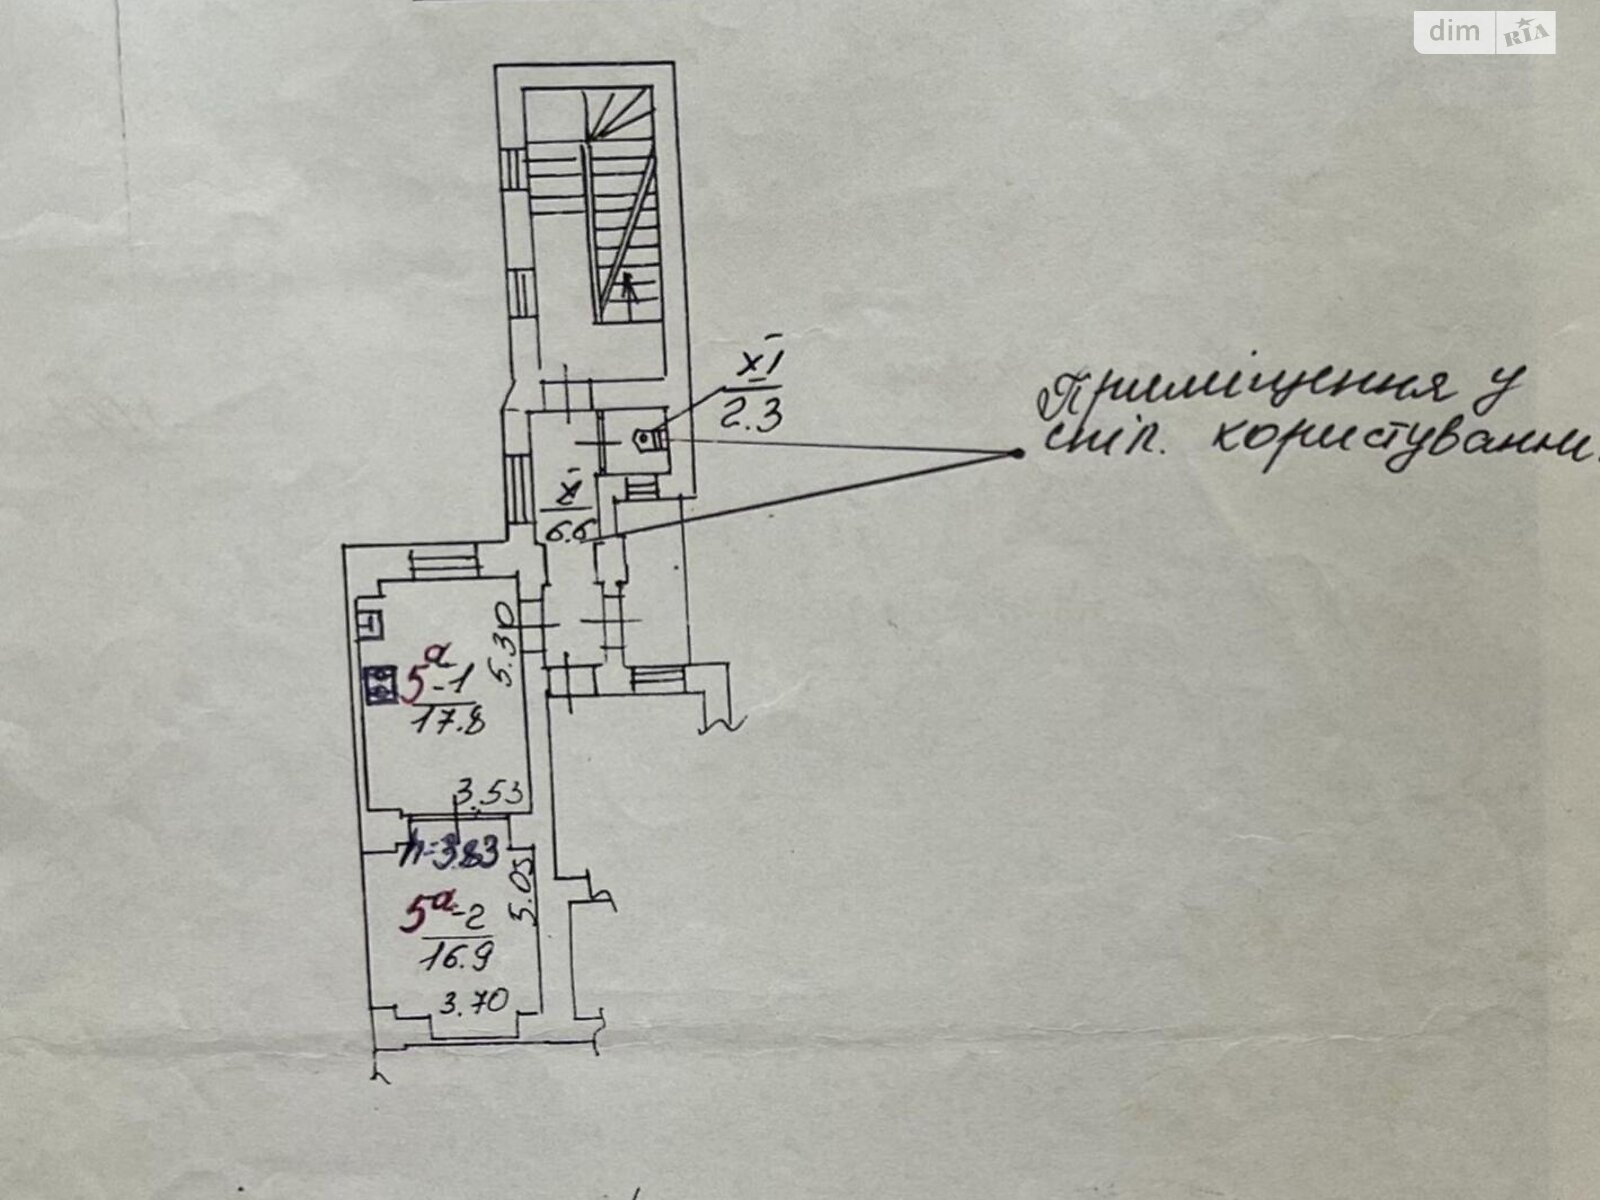 dim RIA
XI
2.3
Приміщення у
спіл. користуванні.
X
6.6
5.30
5ª-1
17.8
3.53
h=3.83
5.05
5ª-2
16.9
3.70